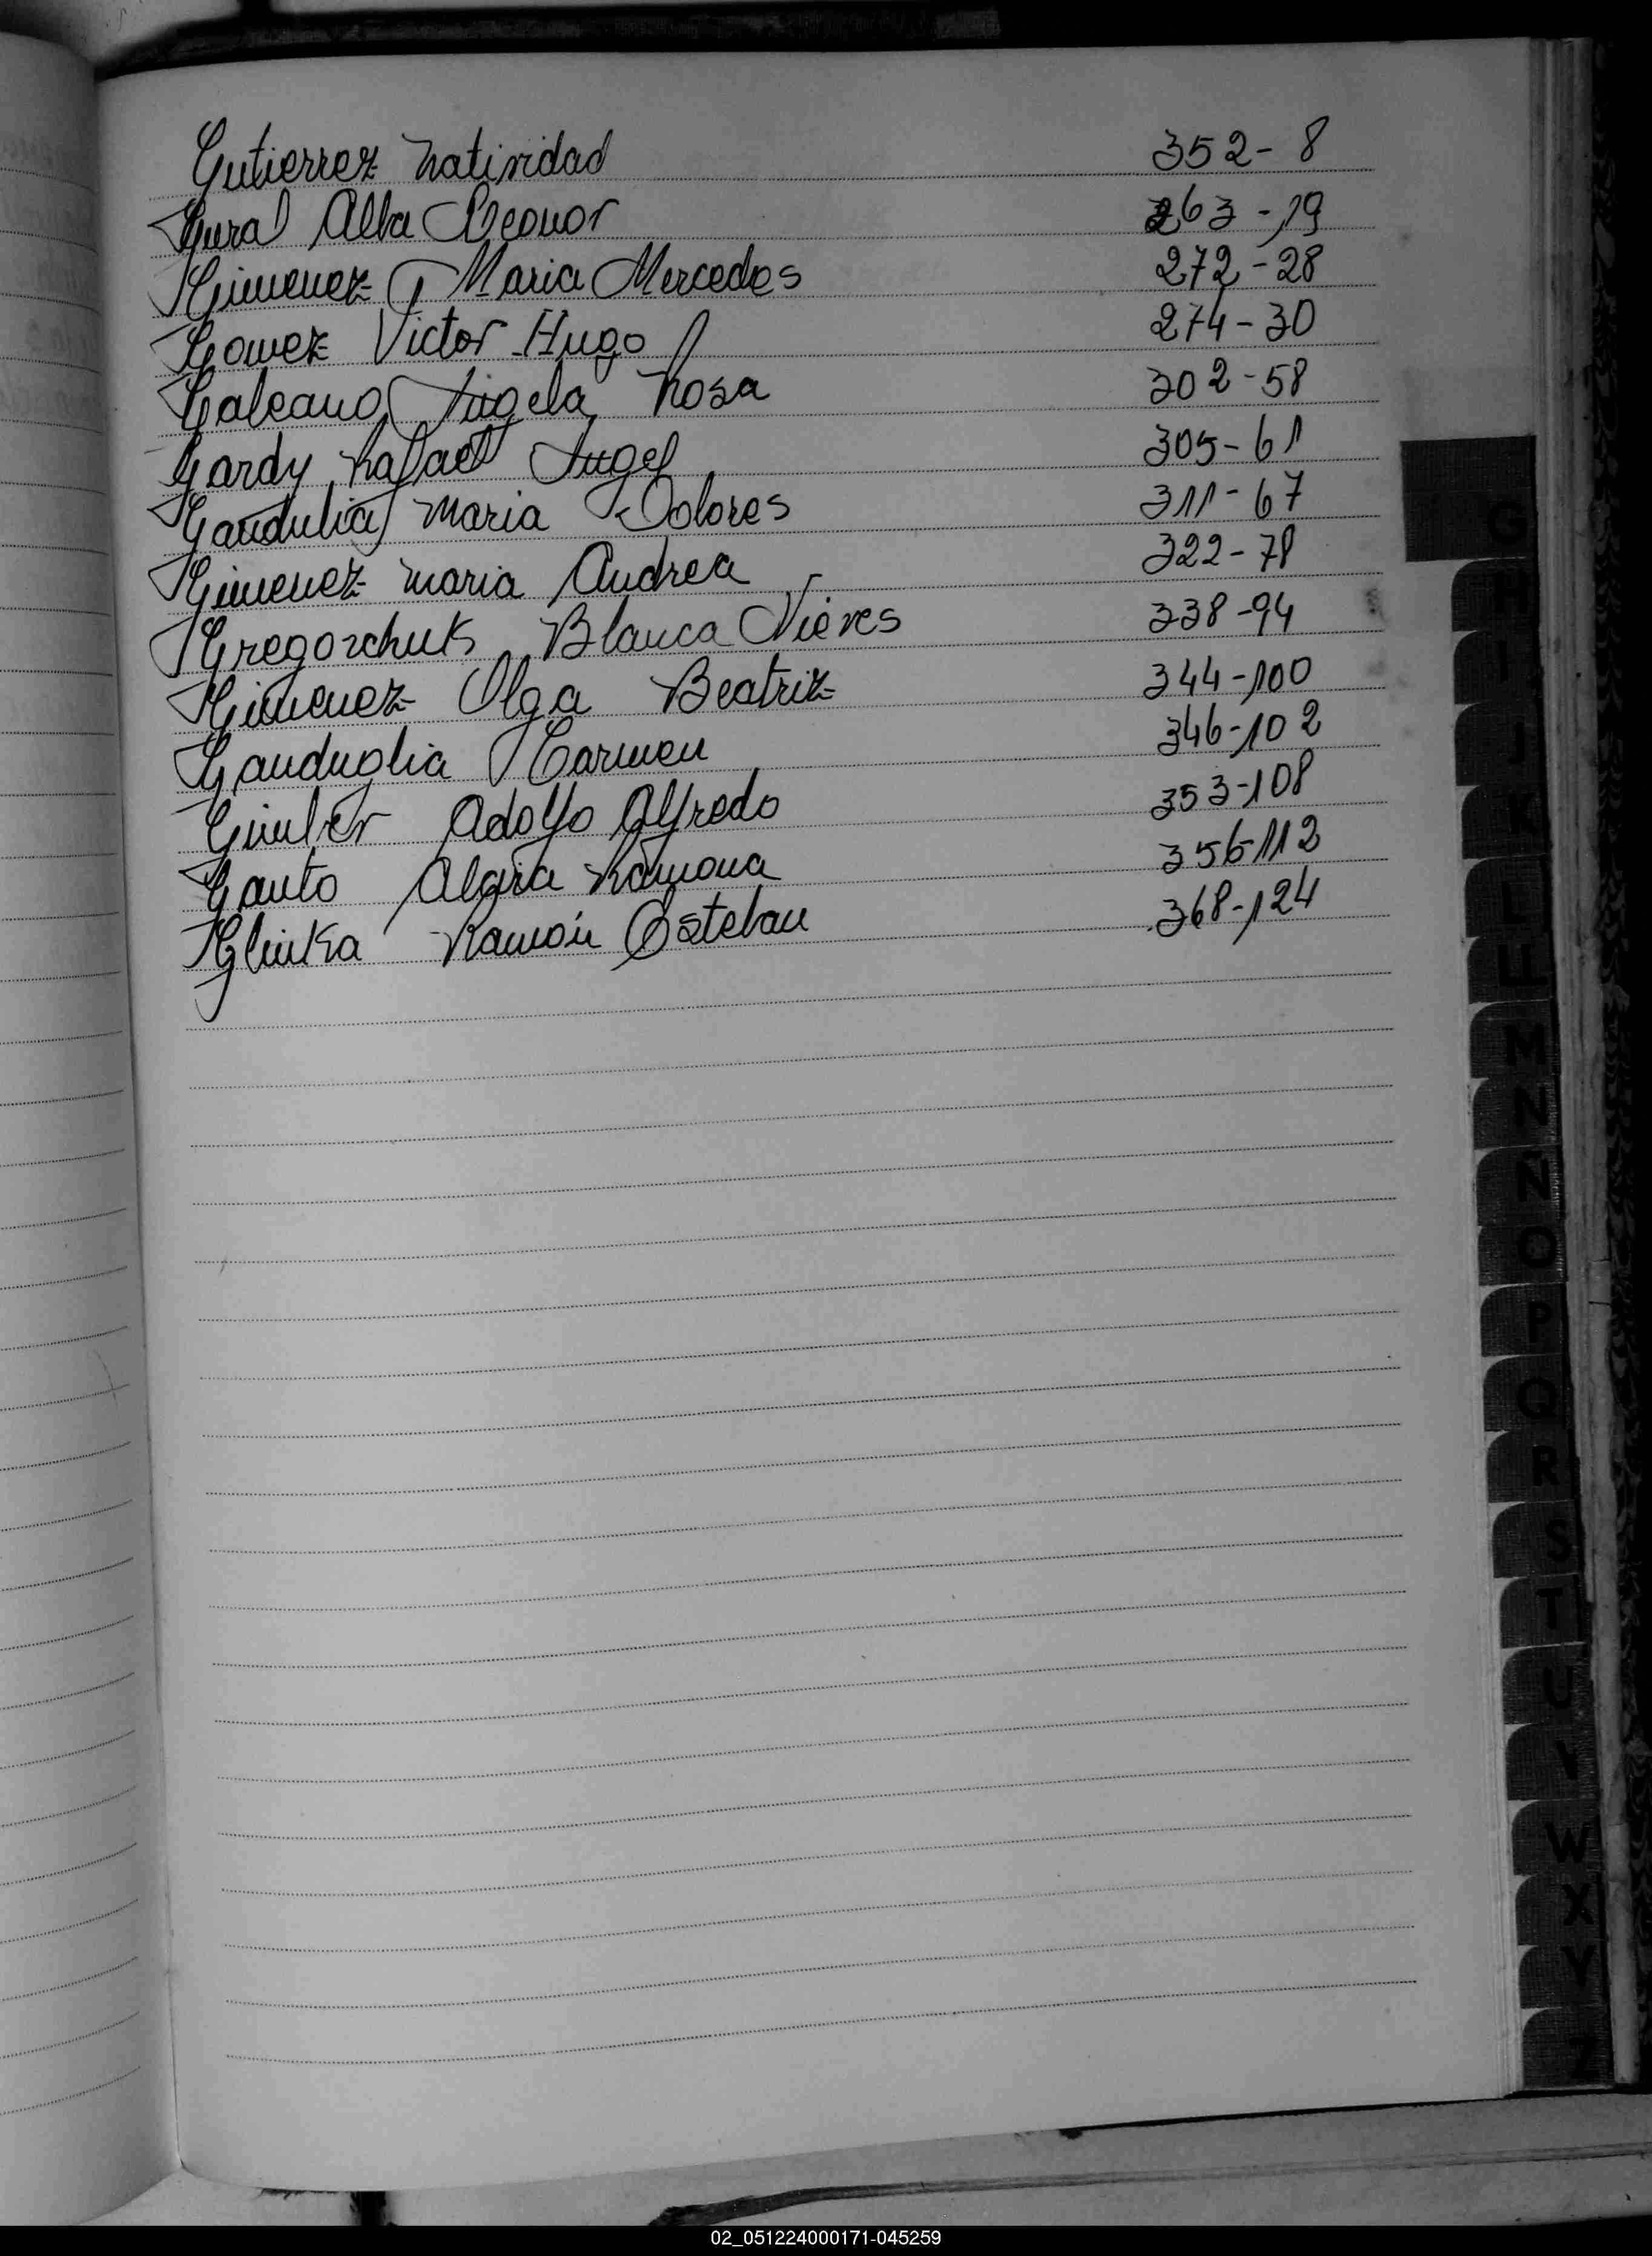 Gutierrez Natividad 352-8
Gural Alba Leonor 263-19
Gimenez Maria Mercedes 272-28
Gomez Victor Hugo 274-30
Galeano Angela Rosa 302-58
Gardy Rafael Angel 305-61
Gandulia Maria Dolores 311-67
Gimenez Maria Andrea 322-78
Gregorchuk Blanca Nieves 338-94
Gimenez Olga Beatriz 344-100
Ganduglia Carmen 346-102
Adolfo Alfredo 353-108
Gauto Ramona 356-112
Glinka Ramón Esteban 368-124
G
H
I
J
K
L
LL
M
N
Ñ
O
P
Q
R
S
T
U
V
W
X
Y
Z
02_051224000171-045259